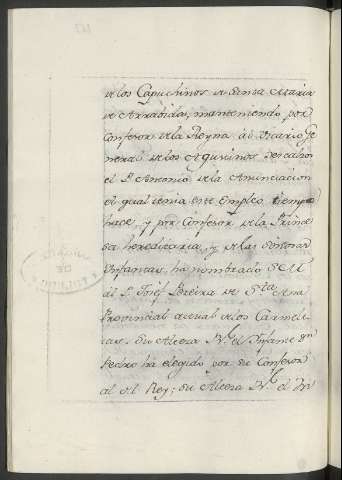 de los Capuchinos de Santa Maria
de Arrabidos, manteniendo por
Confesor de la Reyna al Vicario Ge
neral de los Agustinos Descalzos
el P. Antonio de la Anunciacion
el qual tenia este Empleo tiempo
hace, y por Confesor de la Prince
sa hereditaria, y de las Señoras
Ynfantas, ha nombrado S. M.
al P. Josef Pereira de S.ta Ana
Provincial actual de los Carmeli
tas. Su Alteza R.l el Ynfante Dn
Pedro ha elegido por su Confesor
al del Rey; su Alteza R.l el Yn